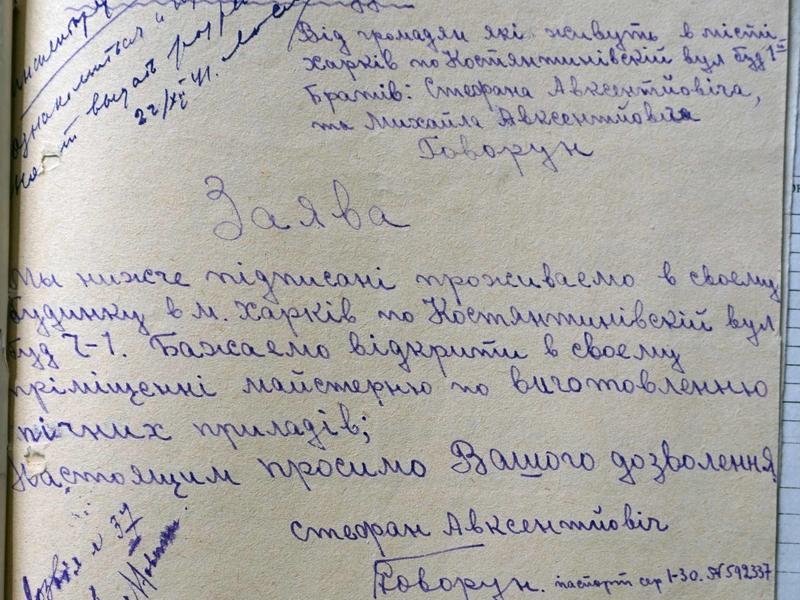 ознакомиться и
выдать разр
22/XII 41.
Від громадян які живуть в місті
Харків по Костянтинівскій вул буд 1
Братів: Стефана Авксентійовіча,
та Михайла Авксентійовіча
Говорун
Заява
Мы нижче підписані проживаємо в своєму
будинку в м. Харків по Костянтинівскій вул
буд Ч-1. Бажаємо відкрити в своєму
пріміщенні майстерню по виготовленню
пічних приладів;
Настоящим просимо Вашого дозволення
Стефан Авксентійовіч
Говорун. паспорт сер 1-30. № 592337
№ 37